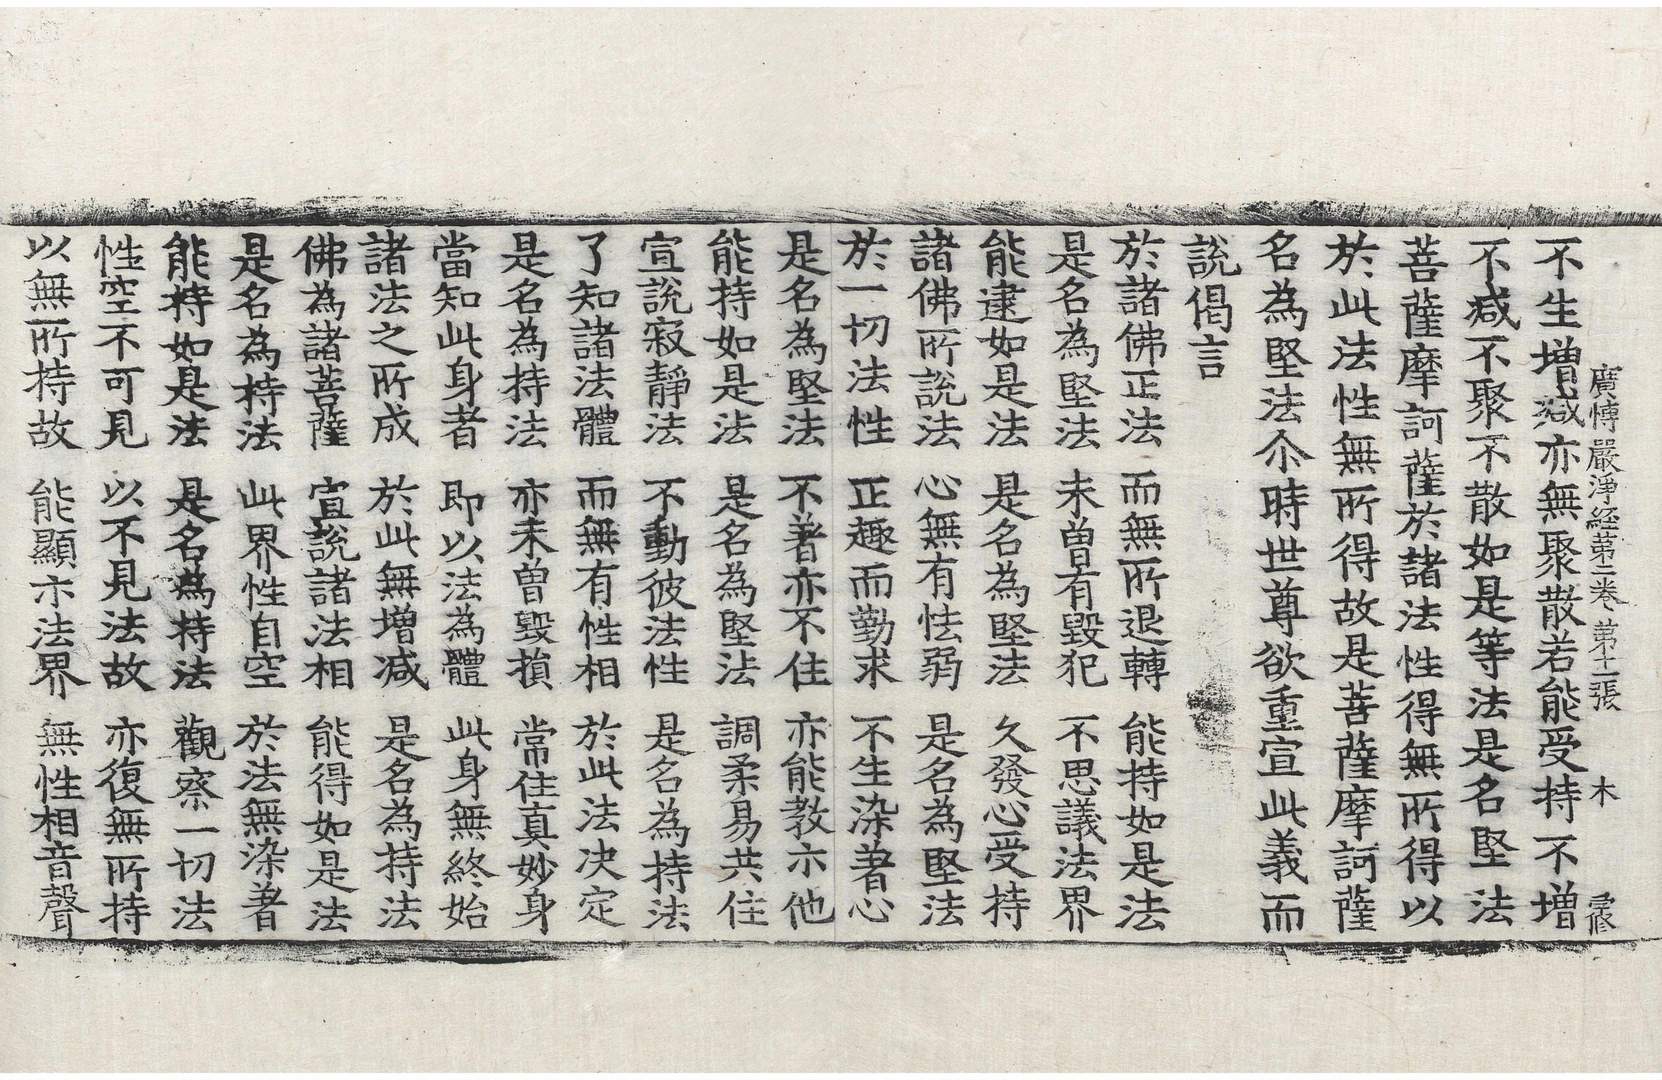 廣愽嚴淨経第二卷 第十二張 木
不生增減亦無聚散若能受持不增
不减不聚不散如是等法是名堅法
菩薩摩訶薩於諸法性得無所得以
於此法性無所得故是菩薩摩訶薩
名為堅法尒時世尊欲重宣此義而
說偈言
於諸佛正法 而無所退轉 能持如是法
是名為堅法 未曽有毀犯 不思議法界
能逮如是法 是名為堅法 久發心受持
諸佛所說法 心無有怯弱 是名為堅法
於一切法性 正趣而勤求 不生染著心
是名為堅法 不著亦不住 亦能教示他
能持如是法 是名為堅法 調柔易共住
宣說寂靜法 不動彼法性 是名為持法
了知諸法體 而無有性相 於此法决定
是名為持法 亦未曽毀損 常住真妙身
當知此身者 即以法為體 此身無終始
諸法之所成 於此無增减 是名為持法
佛為諸菩薩 宣說諸法相 能得如是法
是名為持法 此界性自空 於法無染著
能持如是法 是名為持法 觀察一切法
性空不可見 以不見法故 亦復無所持
以無所持故 能顯示法界 無性相音聲